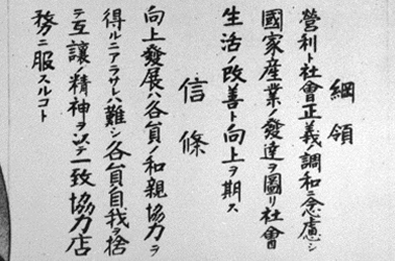 綱領
營利ト社會正義ノ調和ニ念慮シ
國家産業ノ發達ヲ圖リ社會
生活ノ改善ト向上ヲ期ス
信條
向上發展ハ各員ノ和親協力ヲ
得ルニアラサレハ難シ各員自我ヲ捨
テ互讓ノ精神ヲ以テ一致協力店
務ニ服スルコト